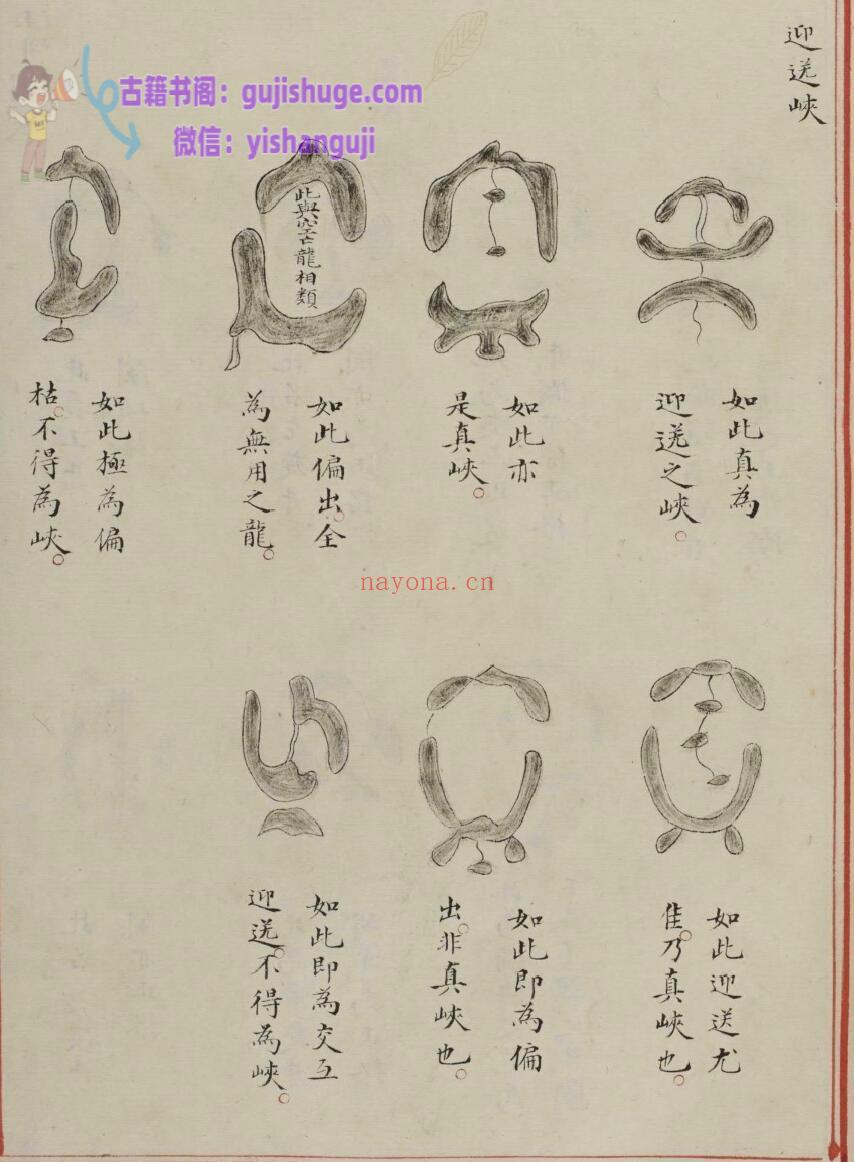 迎送峽
如此真為
迎送之峽。
如此亦
是真峽。
此與空亡龍相類
如此偏出。全
為無用之龍。
如此極為偏
枯。不得為峽。
如此迎送尤
佳。乃真峽也。
如此即為偏
出。非真峽也。
如此即為交互
迎送。不得為峽。
古籍书阁：gujishuge.com
微信：yishanguji
nayona.cn